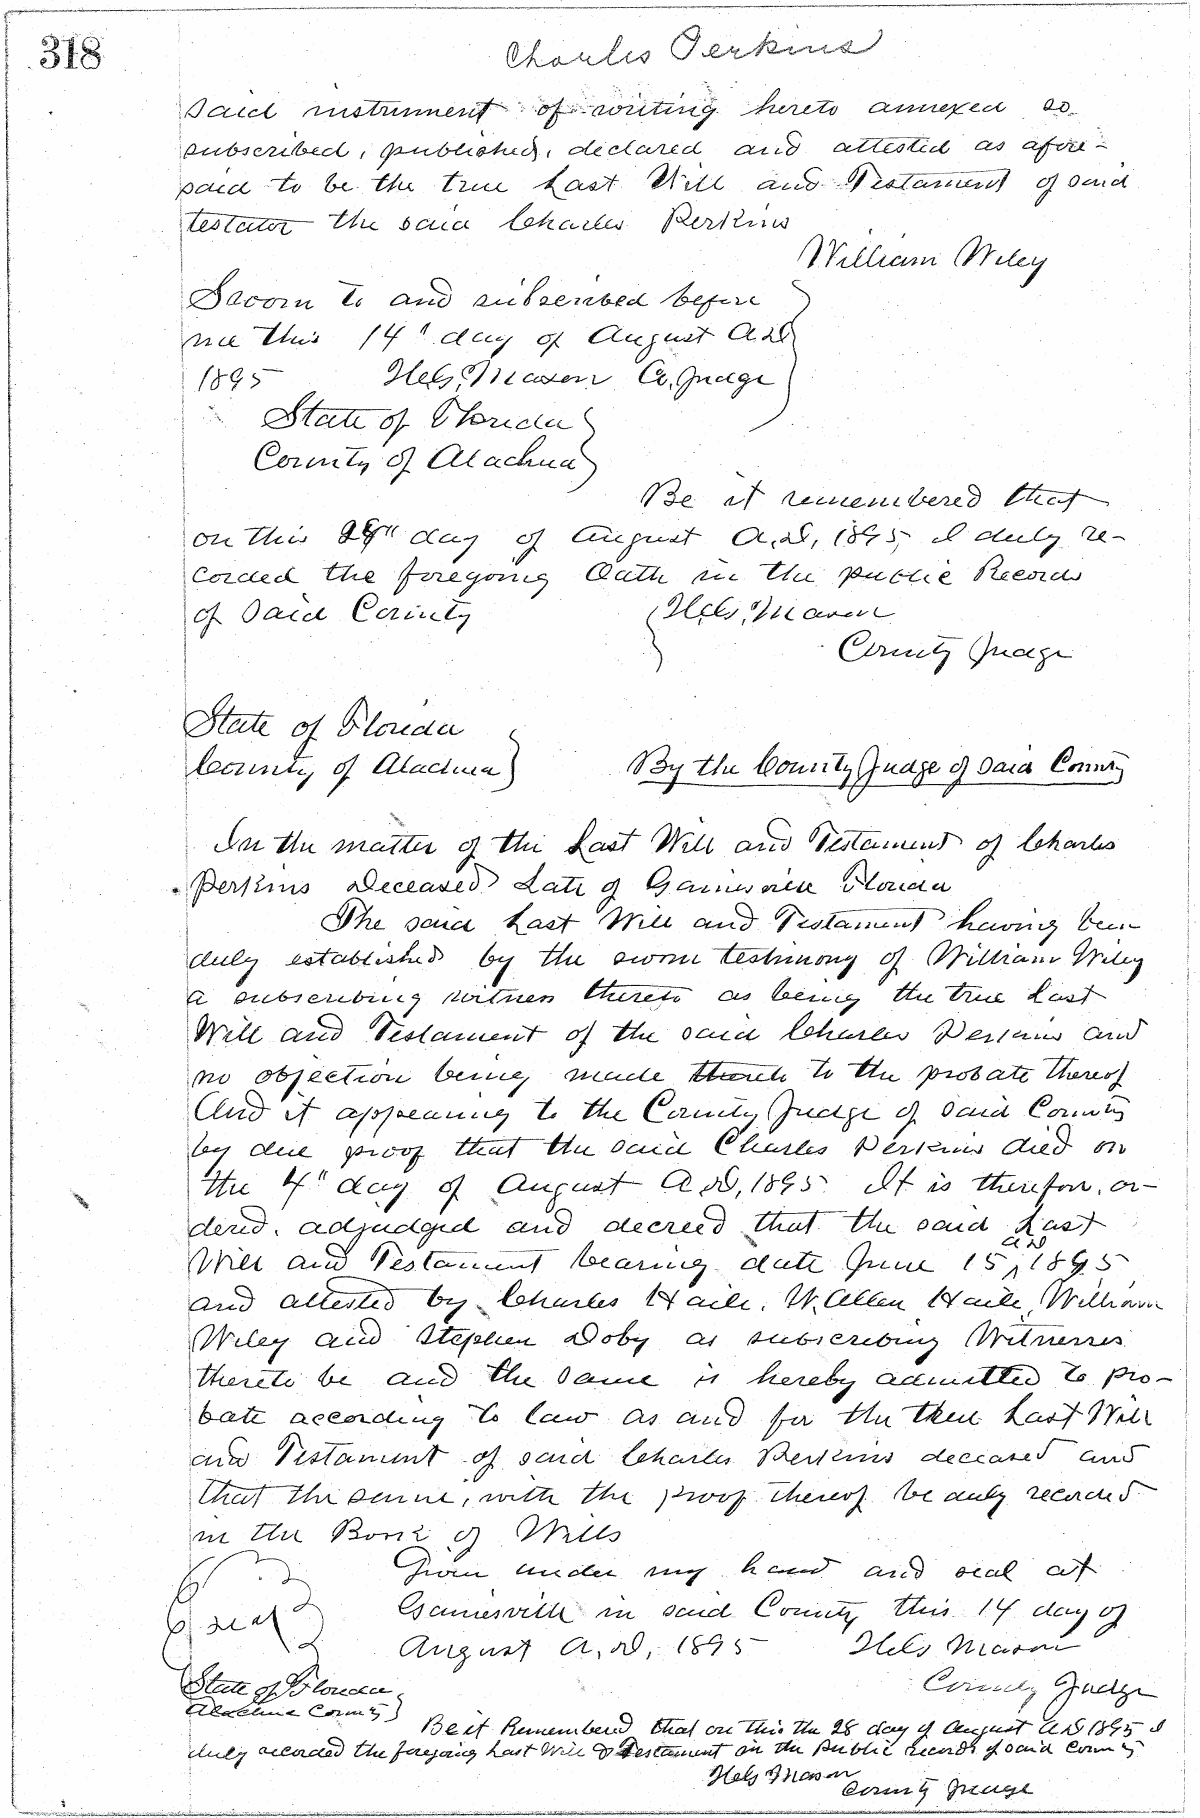 318
Charles Perkins
said instrument of writing hereto annexed so
subscribed, published, declared and attested as afore-
said to be the true Last Will and Testament of said
testator the said Charles Perkins
William Wiley
Sworn to and subscribed before
me this 14" day of August A.D.
1895 Mason Co. Judge
State of Florida
County of Alachua
Be it remembered that
on this day of August A.D. 1895, I duly re-
corded the foregoing Oath in the public Records
of Said County Mason
County Judge
State of Florida
County of Alachua By the County Judge of said County
In the matter of the Last Will and Testament of Charles
Perkins Deceased Late of Gainesville Florida
The said Last Will and Testament having been
duly established by the sworn testimony of William Wiley
a subscribing witness thereto as being the true Last
Will and Testament of the said Charles Perkins and
no objection being made to the probate thereof
And it appearing to the County Judge of said County
by due proof that the said Charles Perkins died on
the 4" day of August A.D. 1895. It is therefore, or-
dered, adjudged and decreed that the said Last
Will and Testament bearing date June 15, A.D. 1895
and attested by Charles Haile, W. Allen Haile, William
Wiley and Stephen Doby as subscribing Witnesses
thereto be and the same is hereby admitted to pro-
bate according to law as and for the Last Will
and Testament of said Charles Perkins deceased and
that the same, with the proof thereof be duly recorded
in the Book of Wills
Given under my hand and seal at
seal Gainesville in said County this 14 day of
August A.D. 1895 Mason
County Judge
State of Florida
Alachua County
Be it Remembered that on this the 28 day of August A.D. 1895 I
duly recorded the foregoing Last Will & Testament in the Public records of said County
Mason
County Judge